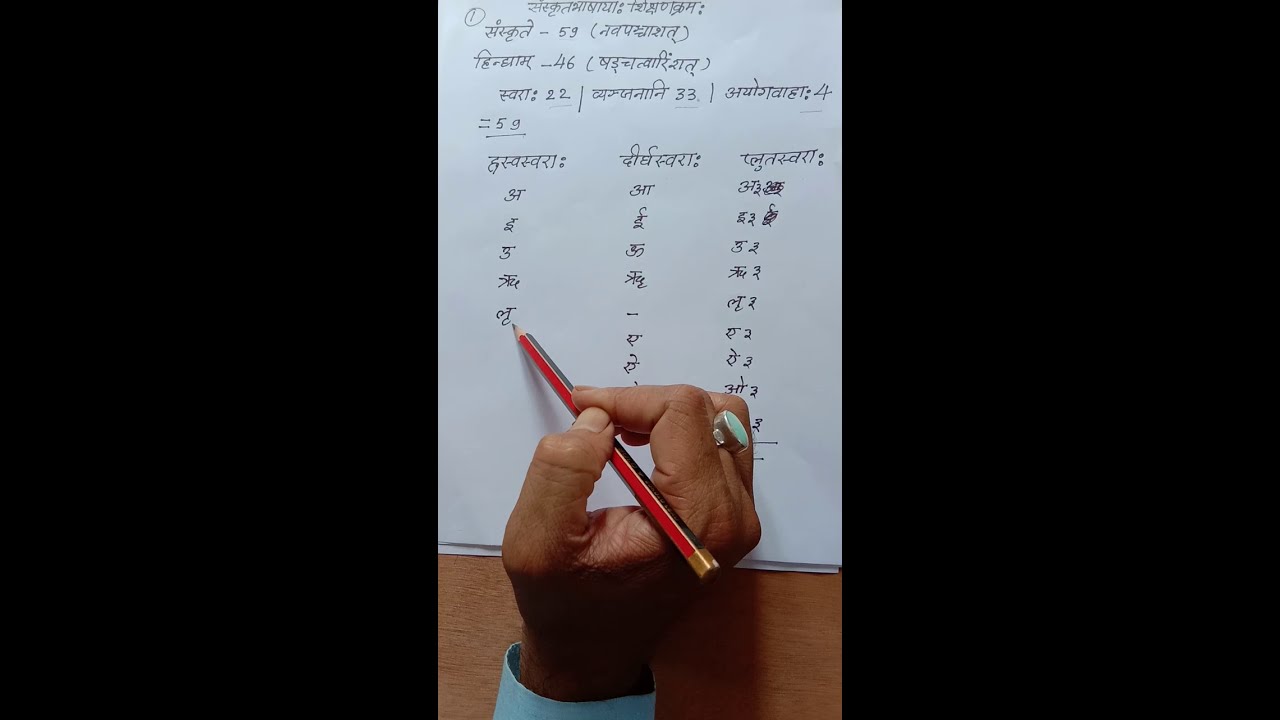 संस्कृतभाषायाः शिक्षणक्रमः
① संस्कृते - 59 (नवपञ्चाशत्)
हिन्द्याम् - 46 (षड्चत्वारिंशत्)
स्वराः 22 | व्यञ्जनानि 33 | अयोगवाहाः 4
= 59
ह्रस्वस्वराः दीर्घस्वराः प्लुतस्वराः
अ आ अ३
इ ई इ३
उ ऊ उ३
ऋ ॠ ऋ३
लृ - लृ३
ए ए३
ऐ ऐ३
ओ३
३